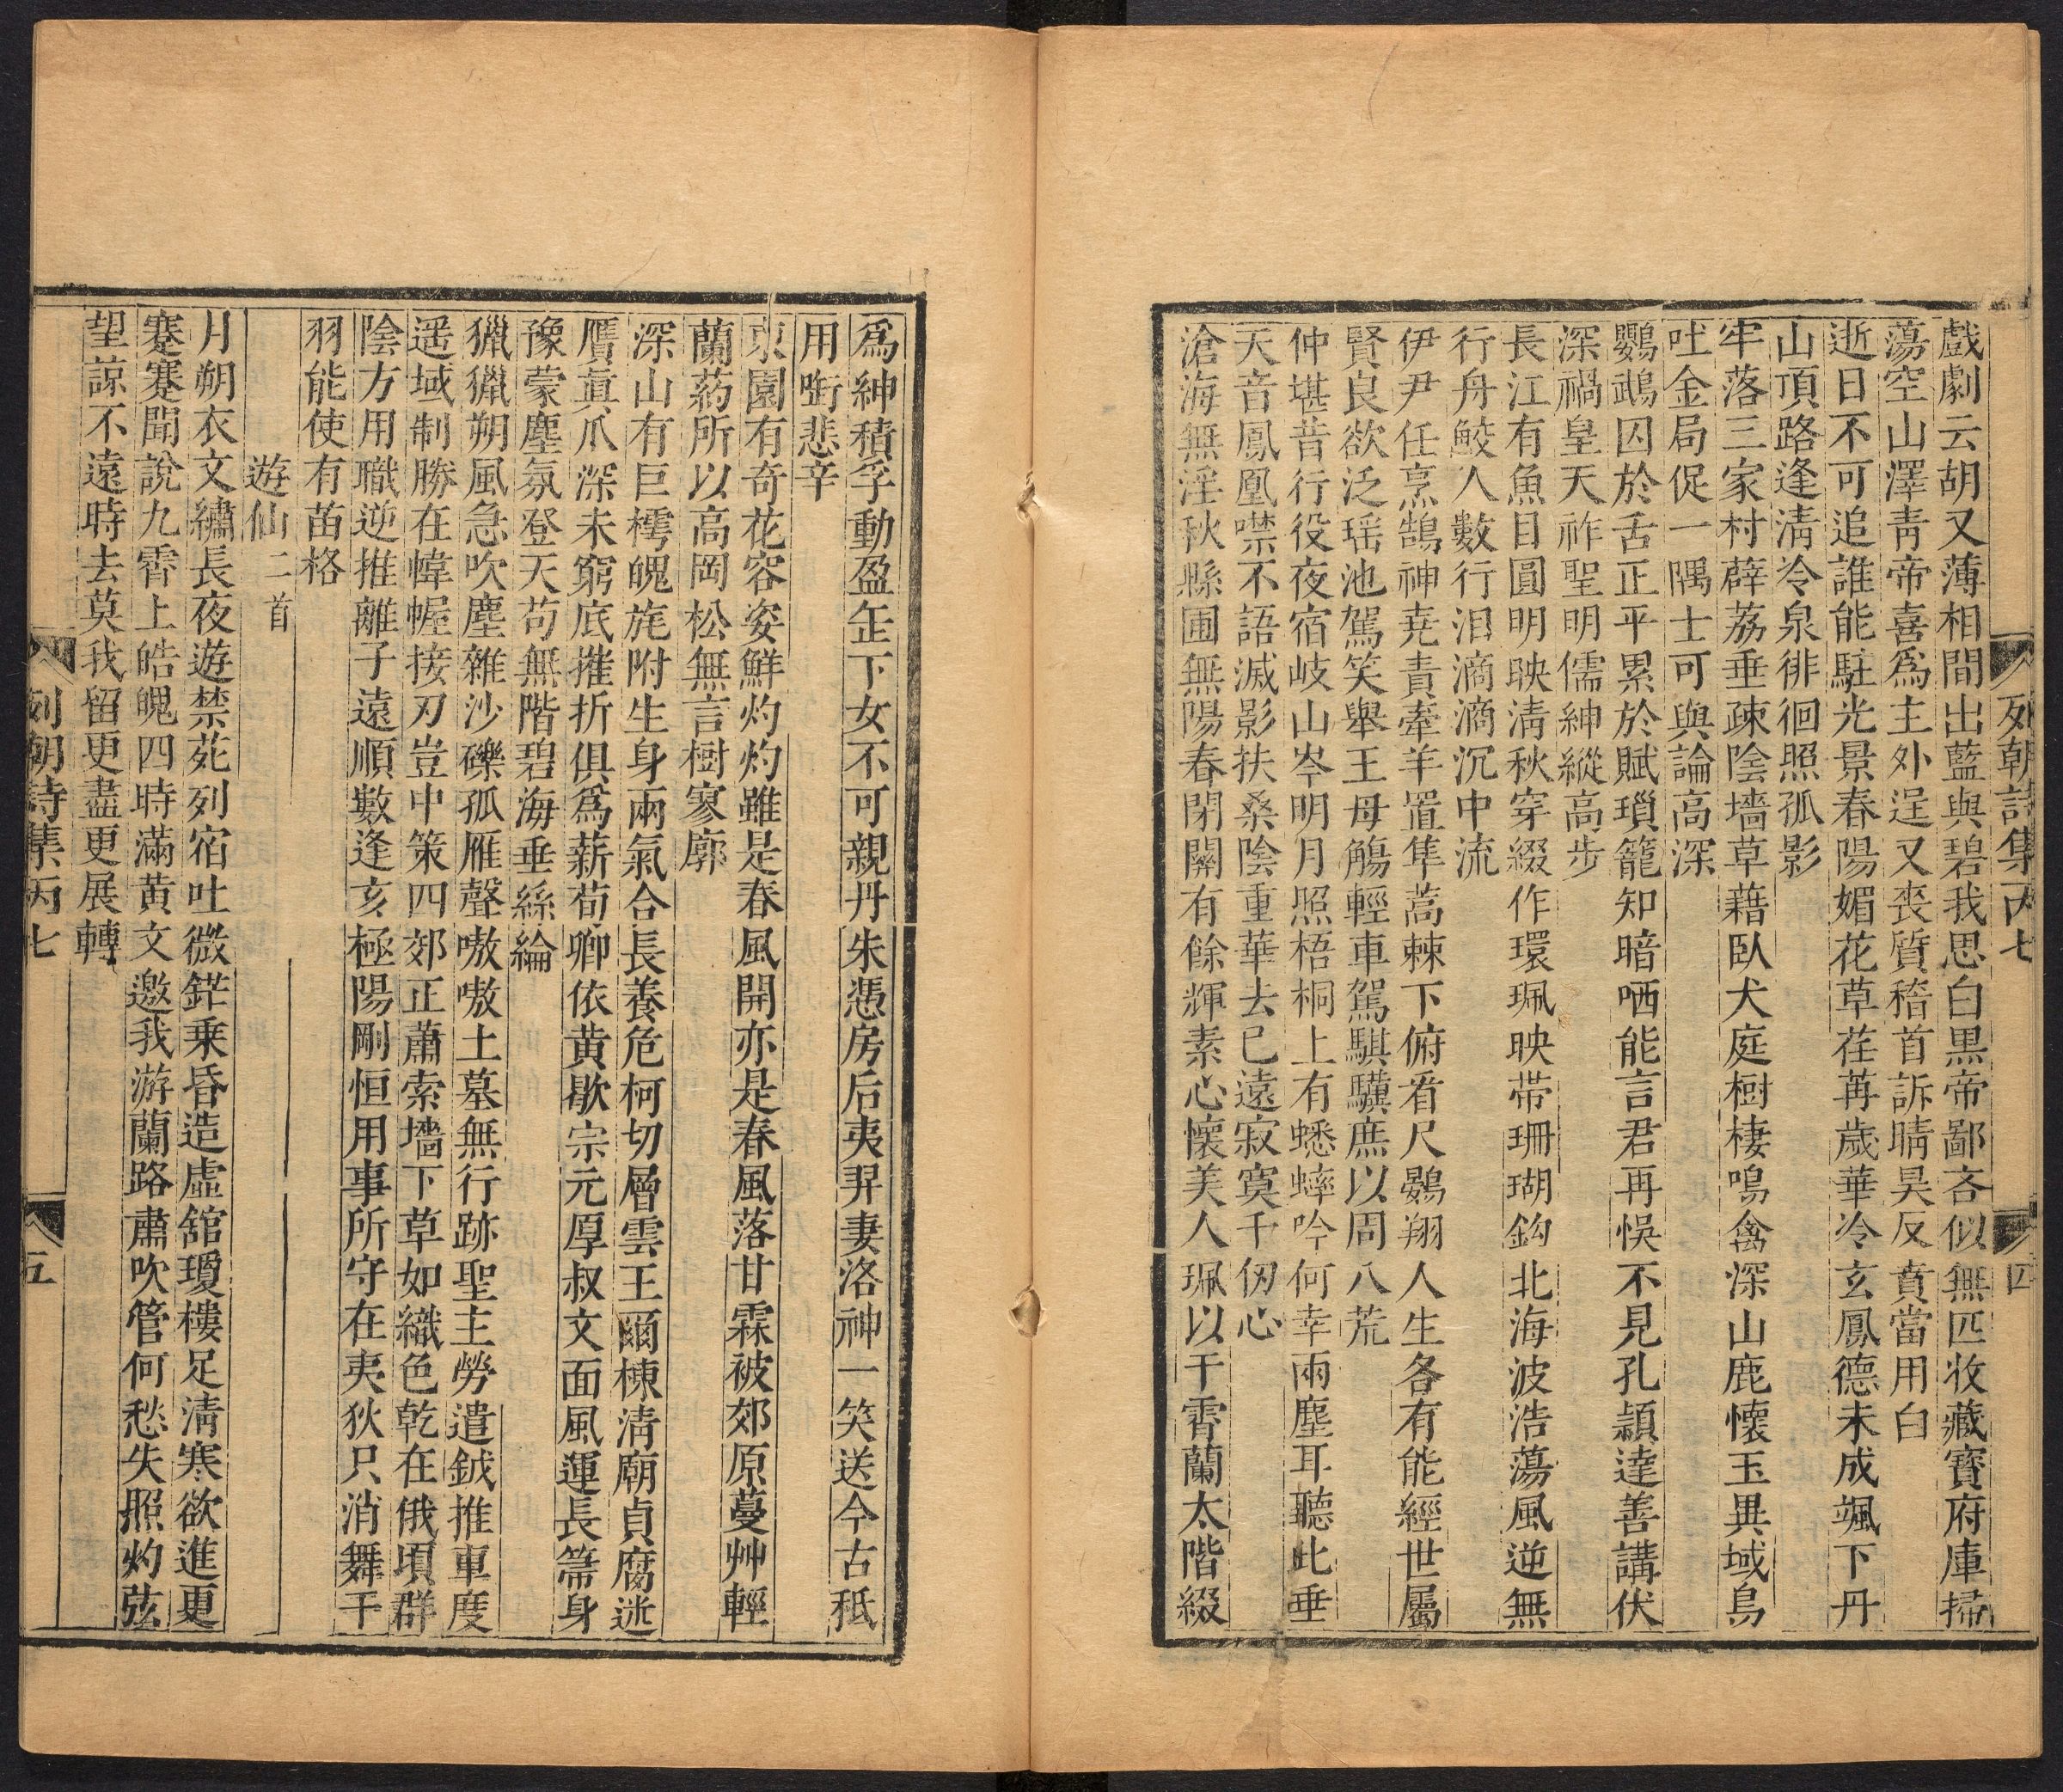 列朝詩集丙七
四
戲劇云胡又薄相間出藍與碧我思白黒帝鄙吝似無匹收藏寳府庫掃
蕩空山澤青帝喜爲主外逞又喪質稽首訴晴昊反賁當用白
逝日不可追誰能駐光景春陽媚花草荏苒歲華冷玄鳳德未成颯下丹
山頂路逢淸冷泉徘徊照孤影
牢落三家村薜荔垂疎陰墻草藉臥犬庭樹棲鳴禽深山鹿懷玉異域鳥
吐金局促一隅士可與論高深
鸚鵡囚於舌正平累於賦瑣籠知暗哂能言君再悞不見孔頴達善講伏
深禍皇天祚聖明儒紳縱高步
長江有魚目圓明映淸秋穿綴作環珮映带珊瑚鈎北海波浩蕩風逆無
行舟鮫人數行泪滴滴沉中流
伊尹任烹鵠神堯責牽羊置隼蒿棘下俯看尺鷃翔人生各有能經世屬
賢良欲泛瑶池駕笑舉王母觴輕車駕騏驥庶以周八荒
仲堪昔行役夜宿岐山岑明月照梧桐上有蟋蟀吟何幸兩塵耳聽此垂
天音鳳凰噤不語滅影扶桑陰重華去已遠寂寞千仞心
滄海無淫秋縣圃無陽春閉關有餘輝素心懷美人珮以干霄蘭太階綴
爲紳積孚動盈缶下女不可親丹朱慿房后夷羿妻洛神一笑送今古秪
用㗸悲辛
東園有奇花容姿鮮灼灼雖是春風開亦是春風落甘霖被郊原蔓艸輕
蘭葯所以高岡松無言樹寥廓
深山有巨樗䰟㫌附生身兩氣合長養危柯切層雲王爾棟淸廟貞腐迷
贗眞爪深未窮底摧折俱爲薪荀卿依黄歇宗元厚叔文面風運長篲身
豫蒙塵氛登天苟無階碧海垂絲綸
獵獵朔風急吹塵雜沙礫孤雁聲嗷嗷土墓無行跡聖主勞遣鉞推車度
遥域制勝在幃幄接刃豈中策四郊正蕭索墻下草如織色乾在俄頃群
陰方用職逆推離子遠順數逢亥極陽剛恒用事所守在夷狄只消舞干
羽能使有苗格
遊仙二首
月朔衣文繡長夜遊禁苑列宿吐微鋩乗昏造虛舘瓊樓足淸寒欲進更
蹇蹇聞說九霄上皓䰟四時滿黄文邀我游蘭路肅吹管何愁失照灼弦
望諒不遠時去莫我留更盡更展轉
列朝詩集丙七
五